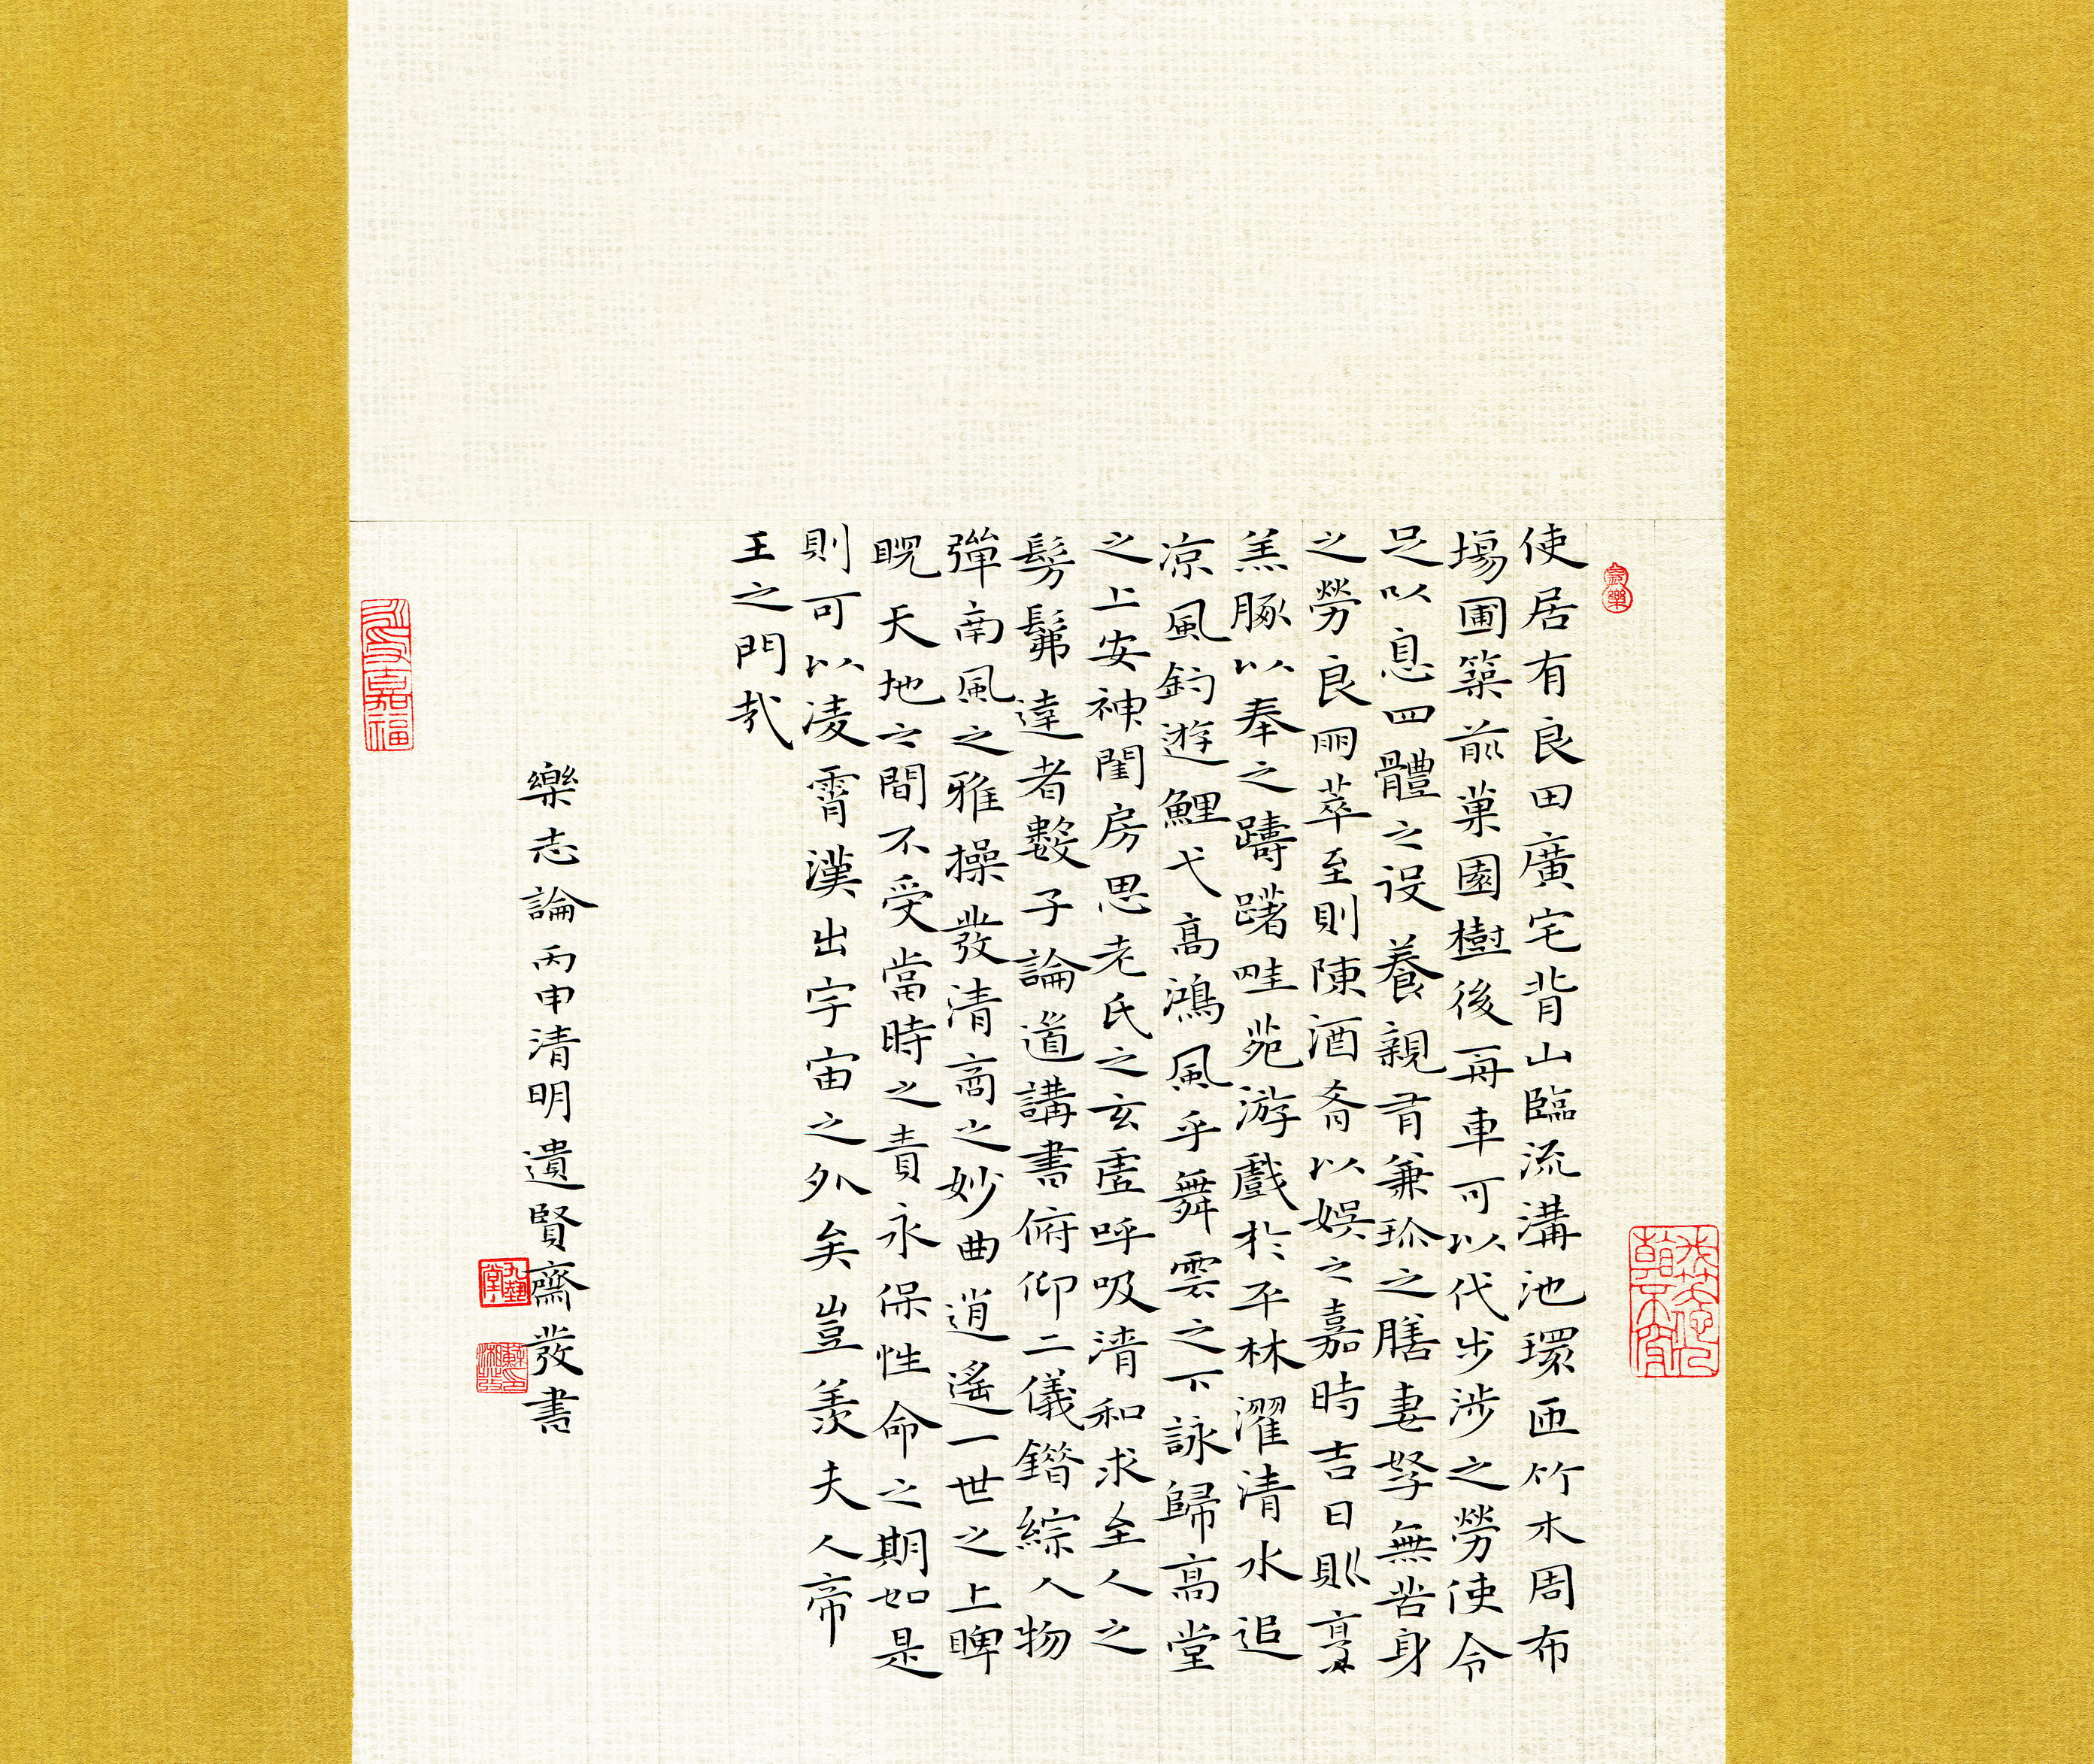 使居有良田廣宅背山臨流溝池環匝竹木周布
場圃築前菓園樹後舟車可以代步涉之勞使令
足以息四體之役養親有兼珍之膳妻孥無苦身
之勞良朋萃至則陳酒肴以娛之嘉時吉日則烹
羔豚以奉之躊躇畦苑游戲於平林濯清水追
凉風釣遊鯉弋高鴻風乎舞雲之下詠歸高堂
之上安神閨房思老氏之玄虛呼吸清和求至人之
髣髴達者數子論道講書俯仰二儀錯綜人物
彈南風之雅操發清商之妙曲逍遙一世之上睥
睨天地之間不受當時之責永保性命之期如是
則可以凌霄漢出宇宙之外矣豈羨夫人帝
王之門哉
樂志論丙申清明遺賢齋發書
九藝堂
永受嘉福